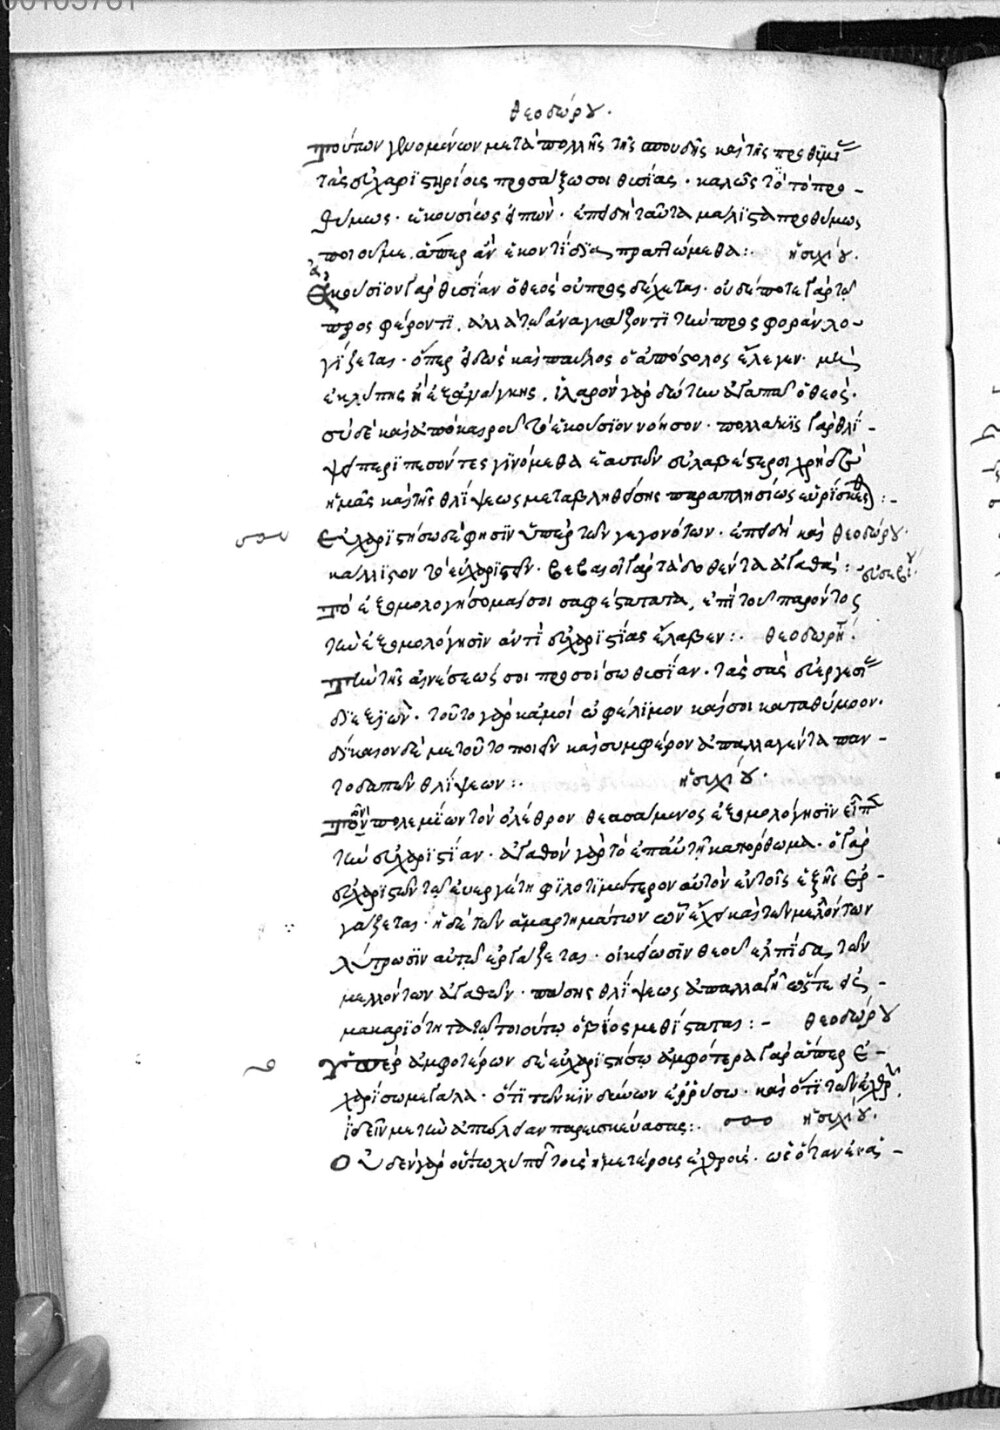 θεοδώρου.
τούτων γενομένων μετὰ πολλῆς τῆς σπουδῆς καὶ τῆς προθυμίας
τὰς εὐχαριστηρίοις προσάξω σοι θυσίας. καλῶς τὸ προ-
θύμως. ἑκουσίως εἰπών. ἐπειδὴ ταῦτα μάλιστα προθύμως
ποιοῦμεν ἅπερ ἂν ἑκοντὶ πραττώμεθα:. ἡσυχίου.
Ἑκούσιον γὰρ θυσίαν ὁ θεὸς οὕτως δέχεται. οὐδέποτε γὰρ τῷ
προσφέροντι. ἀλλὰ τῷ ἀναγκάζοντι τὴν προσφορὰν λο-
γίζεται. ὅπερ εἰδὼς καὶ παῦλος ὁ ἀπόστολος ἔλεγεν. μὴ
ἐκ λύπης ἢ ἐξ ἀνάγκης. ἱλαρὸν γὰρ δότην ἀγαπᾷ ὁ θεός.
σὺ δὲ καὶ ἀπὸ καιροῦ τὸ ἑκούσιον νόησον. πολλάκις γὰρ θλί-
ψει περιπεσόντες γινόμεθα ἑαυτῶν εὐλαβέστεροι
ἡμᾶς καὶ τῆς θλίψεως μεταβληθείσης παραπλησίως εὑρίσκεσθαι:-
Εὐχαριστήσω δέ φησιν ὑπὲρ τῶν γεγονότων. ἐπειδὴ καὶ θεοδώρου.
κάλλιστον τὸ εὐχαριστεῖν. βεβαιοῖ γὰρ τὰ δοθέντα ἀγαθά: εὐσεβίου.
τὸ ἐξομολογήσομαί σοι σαφέστατα, ἐπὶ τοῦ παρόντος
τὴν ἐξομολόγησιν ἀντὶ εὐχαριστίας ἔλαβεν:. θεοδωρήτου.
τὴν τῆς αἰνέσεώς σοι προσοίσω θυσίαν. τὰς σὰς εὐεργεσίας
διεξιών. τοῦτο γὰρ κἀμοὶ ὠφέλιμον καὶ σοι καταθύμιον.
δίκαιον δέ με τοῦτο ποιεῖν καὶ συμφέρον ἀπαλλαγέντα παν-
τοδαπῶν θλίψεων:. ἡσυχίου.
τὸν τῶν πολεμίων τὸν ὄλεθρον θεασάμενος ἐξομολόγησιν εἶπε
τὴν εὐχαριστίαν. ἀγαθὸν γὰρ τὸ ἐπ' αὐτῇ κατόρθωμα. ὁ γὰρ
εὐχαριστῶν τῷ εὐεργέτῃ φιλοτιμότερον αὐτὸν ἐν τοῖς ἑξῆς ἐρ-
γάζεται. ἡ δὲ τῶν ἁμαρτημάτων ὧν ἔχει καὶ τῶν μελλόντων
λύτρωσιν αὐτῷ ἐργάζεται. οἰκείωσιν θεοῦ ἐλπίδας τῶν
μελλόντων ἀγαθῶν. πάσης θλίψεως ἀπαλλαγὴν ὥστε εἰς
μακαριότητα τῷ τοιούτῳ ὁ βίος μεθίσταται:- θεοδώρου
ὑπὲρ ἀμφοτέρων δὲ εὐχαριστήσω ἀμφότερα γὰρ ἅπερ ἐ-
χαρίσω μεγάλα. ὅτι τῶν κινδύνων ἐρρύσω. καὶ ὅτι τῶν ἐχθρῶν
ἰδεῖν με τὴν ἀπώλειαν παρεσκεύασας:. ἡσυχίου.
Οὐδὲν γὰρ οὕτω λυπεῖ τοὺς ἡμετέρους ἐχθρούς. ὡς ὅταν ἐνα-